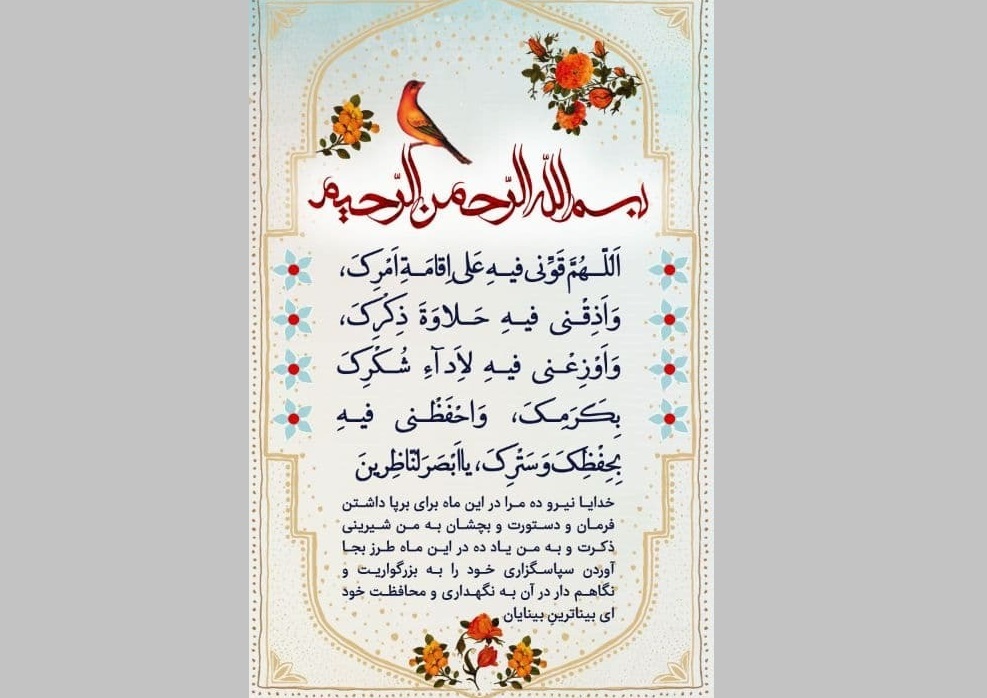 بسم الله الرّحمن الرّحیم
اَللّهُمَّ قَوِّنی فیهِ عَلی اِقامَةِ اَمْرِکَ،
وَاَذِقْنی فیهِ حَلاوَةَ ذِکْرِکَ،
وَاَوْزِعْنی فیهِ لاَِدآءِ شُکْرِکَ
بِکَرَمِکَ، وَاحْفَظْنی فیهِ
بِحِفْظِکَ وَسَتْرِکَ، یا اَبْصَرَ النّاظِرینَ
خدایا نیرو ده مرا در این ماه برای برپا داشتن
فرمان و دستورت و بچشان به من شیرینی
ذکرت و به من یاد ده در این ماه طرز بجا
آوردن سپاسگزاری خود را به بزرگواریت و
نگاهم دار در آن به نگهداری و محافظت خود
ای بیناترینِ بینایان